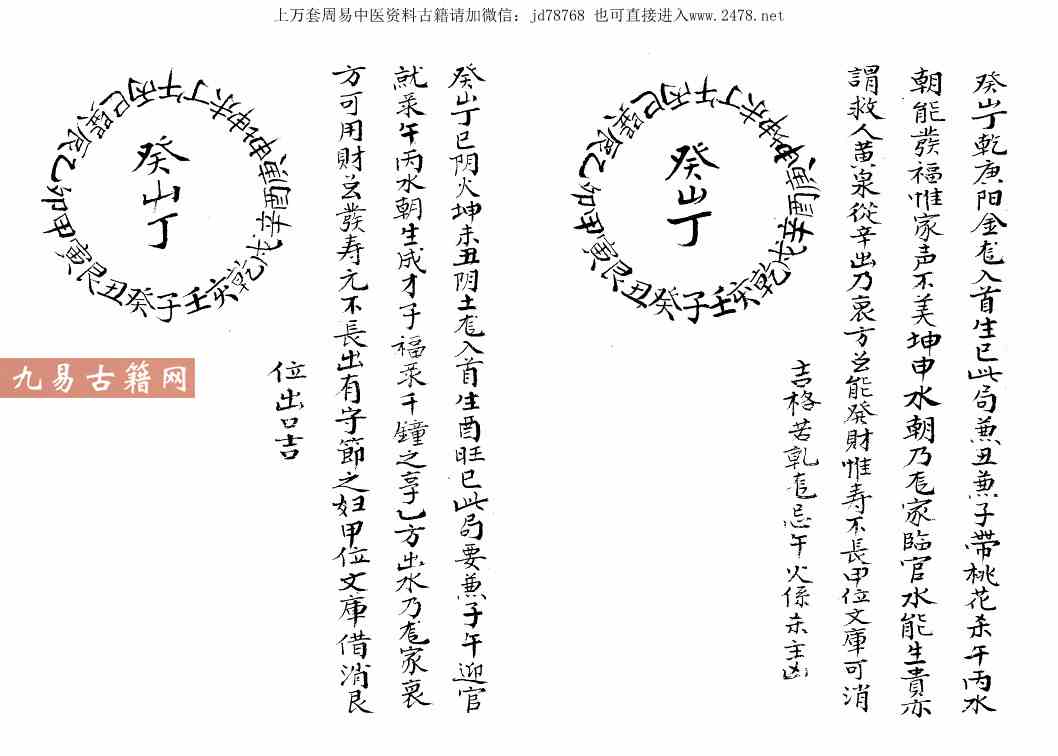 上万套周易中医资料古籍请加微信：jd78768 也可直接进入www.2478.net
癸山丁乾庚阳金龙入首生巳此局兼丑兼子带桃花杀午丙水
朝能發福惟家声不美坤申水朝乃龙家臨官水能生貴亦
謂救人黄泉從辛出乃衰方㞢能發財惟寿不長甲位文庫可消
吉格苦乾龙忌午火係未主凶
癸山丁
癸子壬亥乾戌辛酉庚申坤未丁午丙巳巽辰乙卯甲寅艮丑
癸山丁巳阴火坤未丑阴土龙入首生酉旺巳此局要兼子午迎官
就菉午丙水朝生成才子福菉千鐘之享乙方出水乃龙家衰
方可用財㞢發寿元不長出有守節之妇甲位文庫借消艮
位出口吉
癸山丁
癸子壬亥乾戌辛酉庚申坤未丁午丙巳巽辰乙卯甲寅艮丑
九易古籍网